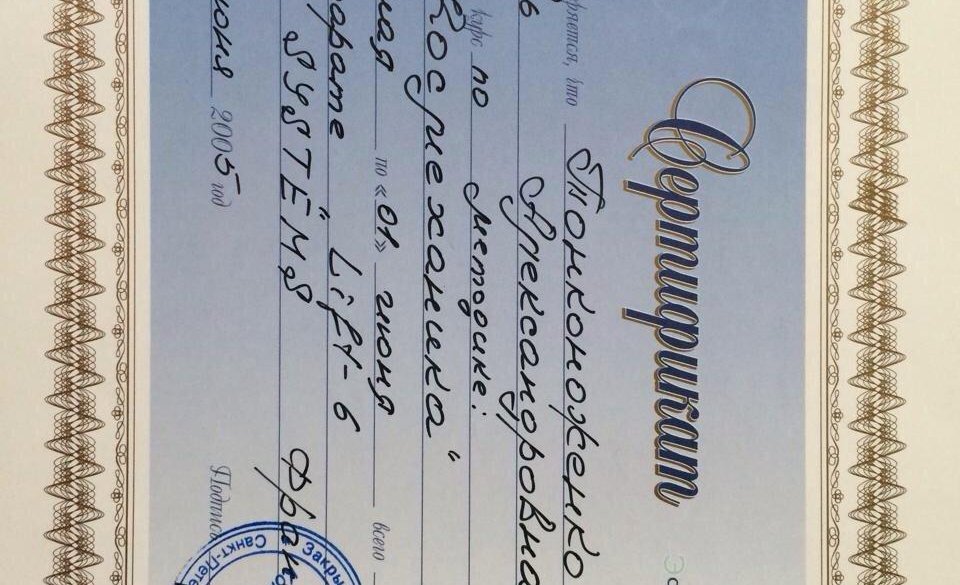 Сертификат
ряется, что Тонконоженко
Александровна
курс по методике:
Космеханика"
мая по «01» июня всего
парате "Lift-6
SYSTEMS Фран
июня 2005 год Подпись
Закры
Санкт-Пете